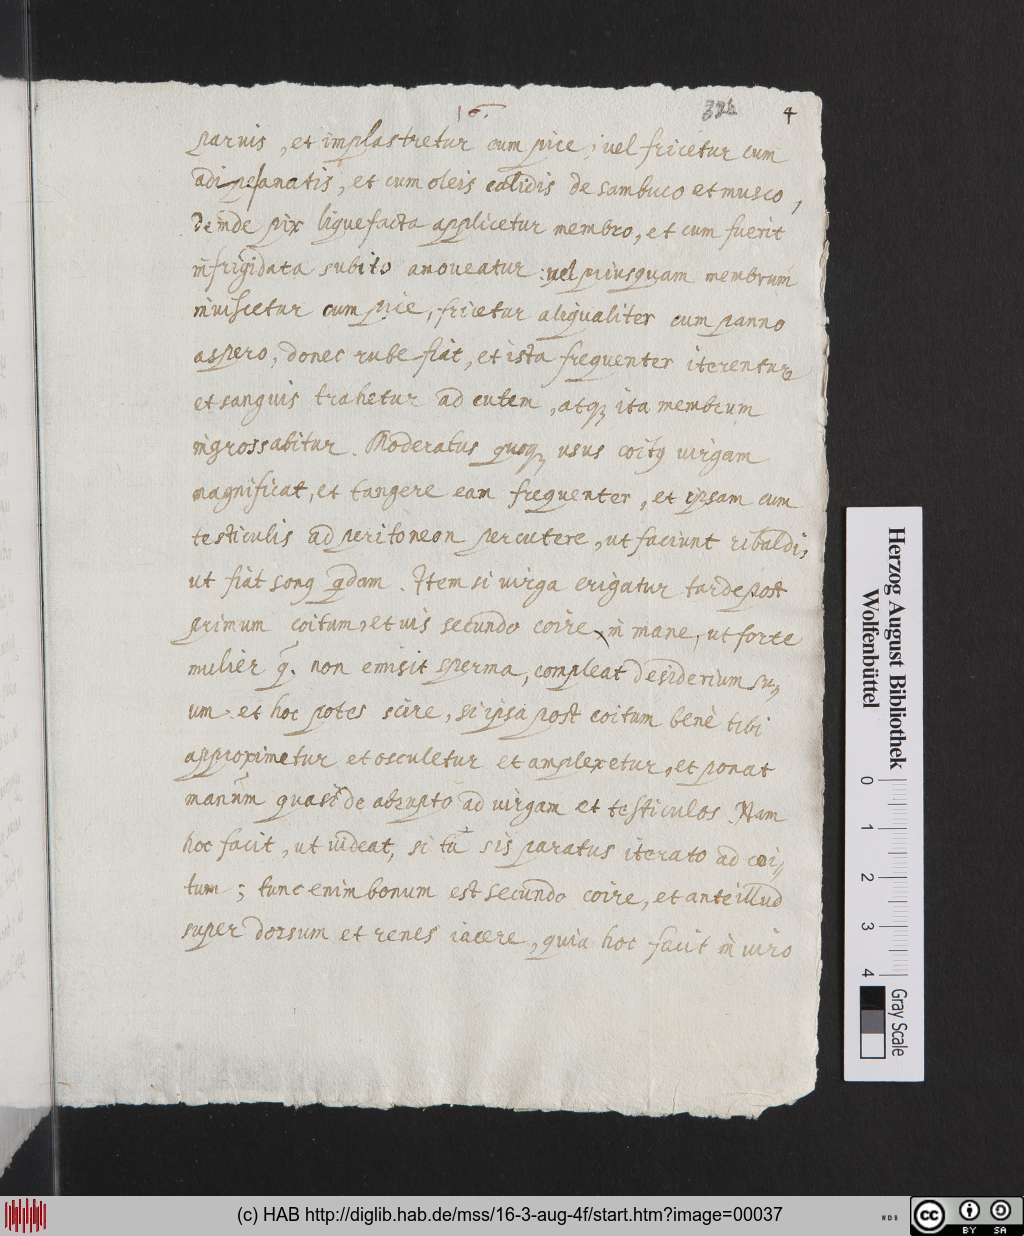 16.
4
parvis, et implastretur cum pice; vel fricetur cum
adipe anatis, et cum oleis calidis de sambuco et musco,
deinde pix liquefacta applicetur membro, et cum fuerit
infrigidata subito amoveatur: vel priusquam membrum
inviscetur cum pice, fricetur aliqualiter cum panno
aspero, donec rube fiat, et ista frequenter iterentur
et sanguis trahetur ad cutem, atq; ita membrum
ingrossabitur. Moderatus quoq; usus coitus virgam
magnificat, et tangere eam frequenter, et ipsam cum
testiculis ad peritoneon percutere, ut faciunt ribaldi,
ut fiat sonus qdam. Item si virga erigatur tarde post
primum coitum, et vis secundo coire in mane, ut forte
mulier q. non emisit sperma, compleat desiderium su,,
um et hoc potes scire, si ipsa post coitum benè tibi
approximetur et osculetur et amplexetur, et ponat
manum quasi de abrupto ad virgam et testiculos. Nam
hoc facit, ut videat, si tu sis paratus iterato ad coi,,
tum; tunc enim bonum est secundo coire, et ante illud
super dorsum et renes iacere, quia hoc facit in viro
Herzog August Bibliothek
Wolfenbüttel
0 1 2 3 4
Gray Scale
(c) HAB http://diglib.hab.de/mss/16-3-aug-4f/start.htm?image=00037
WDB
cc BY SA